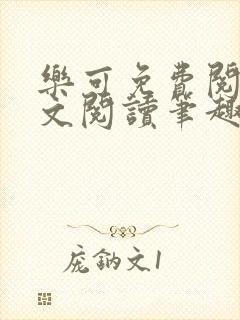 樂可免費閱
文閱讀筆趣
庞鈉文1